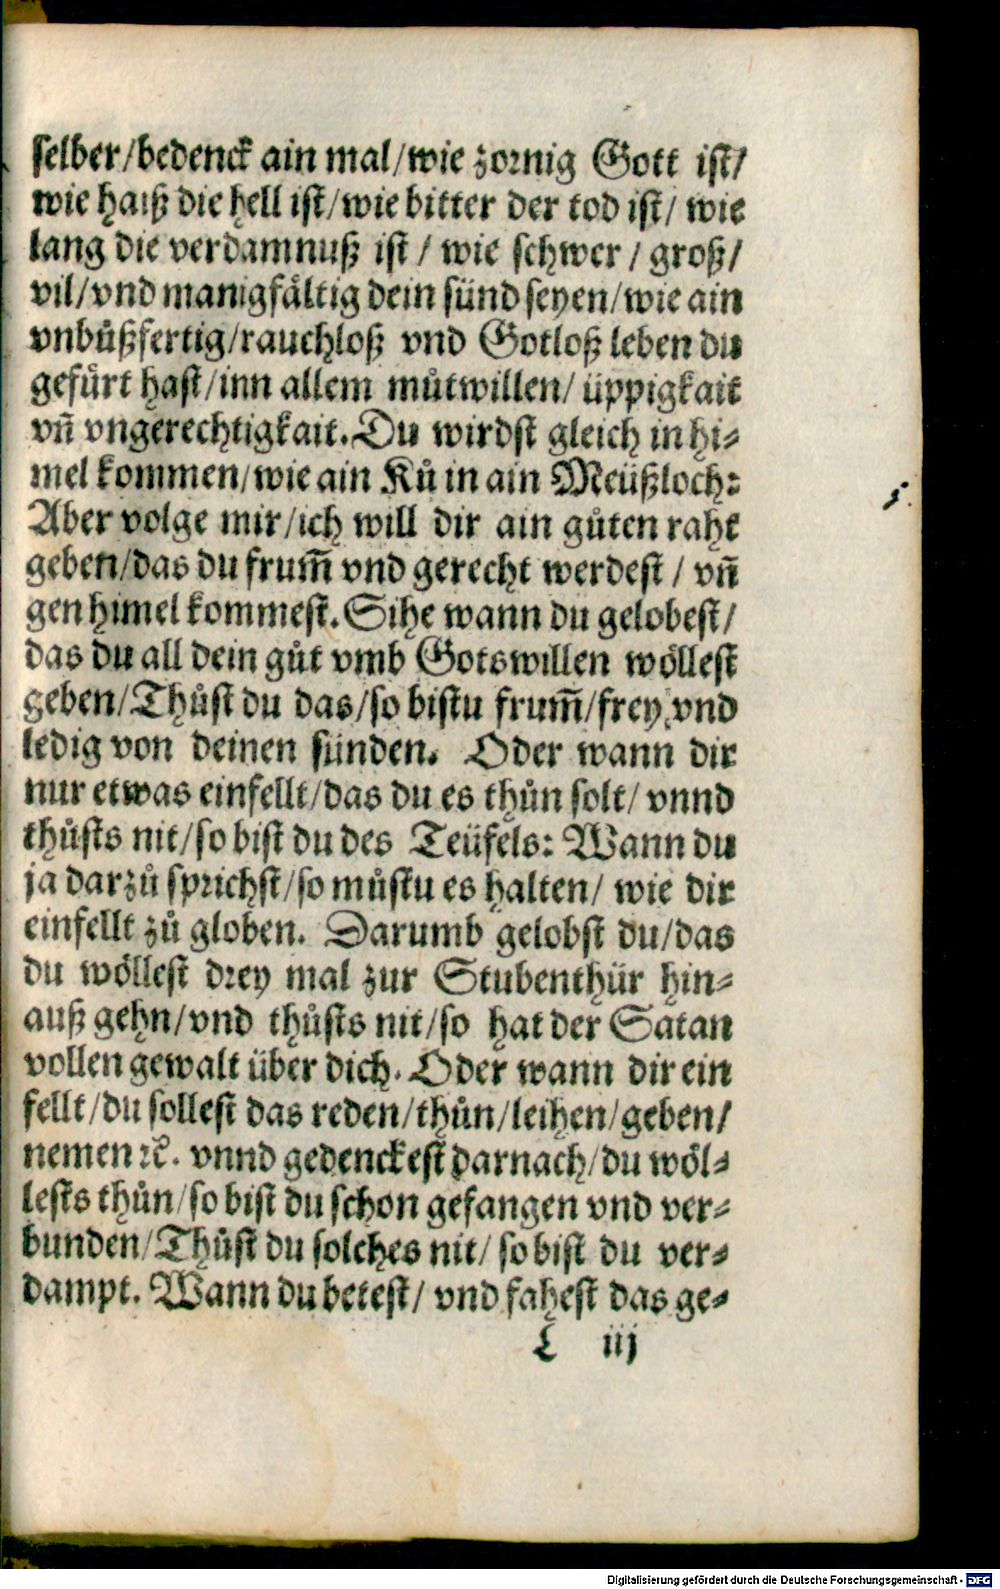 selber/bedenck ain mal/wie zornig Gott ist/
wie haiß die hell ist/wie bitter der tod ist/ wie
lang die verdamnuß ist / wie schwer / groß/
vil/vnd manigfältig dein sünd seyen/wie ain
vnbůßfertig/rauchloß vnd Gotloß leben du
gefürt hast/inn allem můtwillen/ üppigkait
vñ vngerechtigkait. Du wirdst gleich in hi⸗
mel kommen/wie ain Ků in ain Meüßloch:
Aber volge mir/ich will dir ain gůten raht
geben/das du frum̃ vnd gerecht werdest / vñ
gen himel kommest. Sihe wann du gelobest/
das du all dein gůt vmb Gotswillen wöllest
geben/Thůst du das/so bistu frum̃/frey vnd
ledig von deinen sünden. Oder wann dir
nur etwas einfellt/das du es thůn solt/ vnnd
thůsts nit/so bist du des Teüfels: Wann du
ja darzů sprichst/so můstu es halten/ wie dir
einfellt zů globen. Darumb gelobst du/das
du wöllest drey mal zur Stubenthür hin⸗
auß gehn/vnd thůsts nit/so hat der Satan
vollen gewalt über dich. Oder wann dir ein
fellt/du sollest das reden/thůn/leihen/geben/
nemen ꝛc. vnnd gedenckest darnach/du wöl⸗
lests thůn/so bist du schon gefangen vnd ver⸗
bunden/Thůst du solches nit/ so bist du ver⸗
dampt. Wann du betest/ vnd fahest das ge⸗
L iij
Digitalisierung gefördert durch die Deutsche Forschungsgemeinschaft - DFG